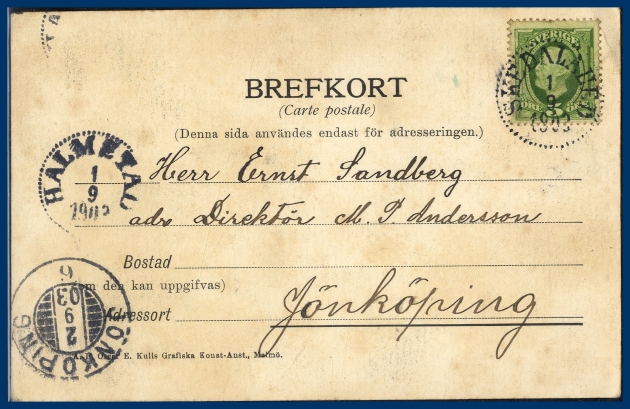 SVERIGE
SKEDALAHED
1
9
1903
BREFKORT
(Carte postale)
(Denna sida användes endast för adresseringen.)
HALMSTAD
1
9
1903
Herr Ernst Sandberg
adr Direktör M. P. Andersson
Bostad
(om den kan uppgifvas)
Jönköping
Adressort
JÖNKÖPING
2
9
03
6
E. Kulls Grafiska Konst-Anst., Malmö.